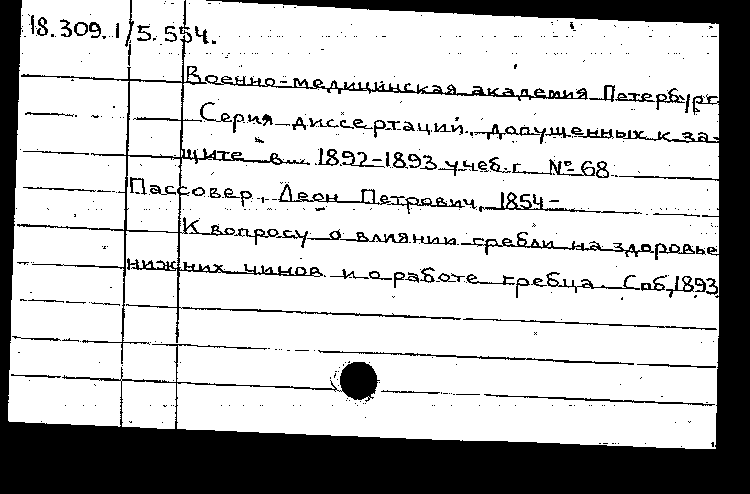 18.309.1/5.554.
Военно-медицинская академия Петербург.
Серия диссертаций, допущенных к за-
щите в... 1892-1893 учеб. г. № 68
Пассовер, Леон Петрович, 1854-
К вопросу о влиянии гребли на здоровье
нижних чинов и о работе гребца. Спб, 1893